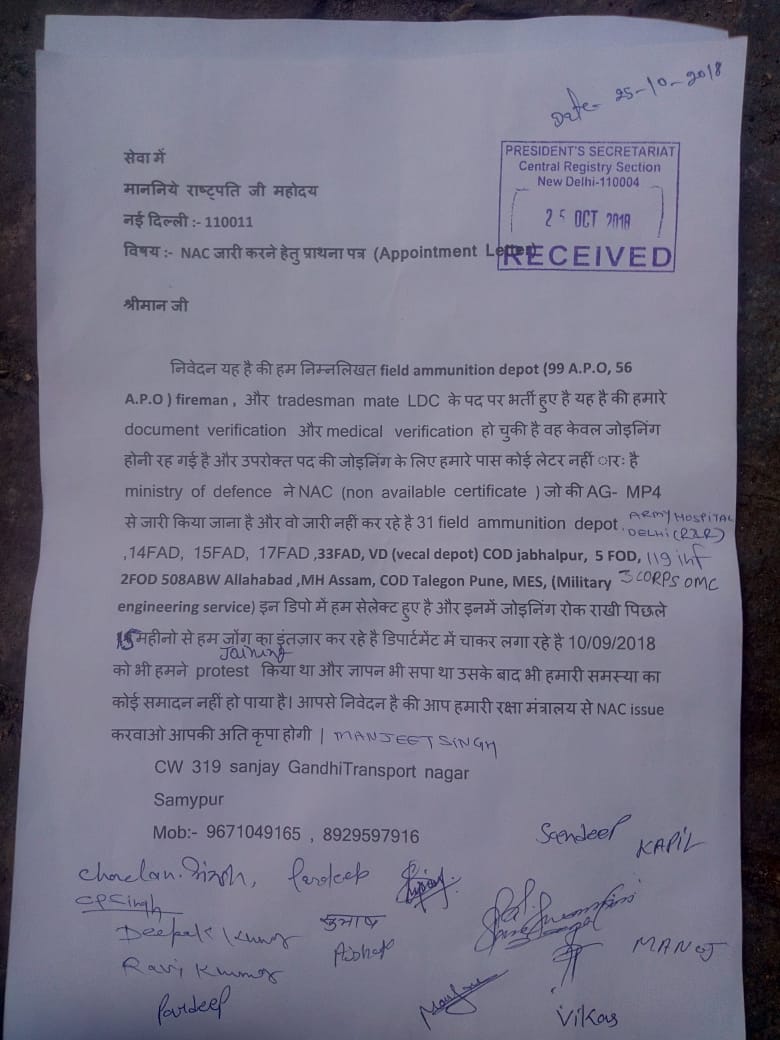 Date- 25-10-2018
PRESIDENT'S SECRETARIAT
Central Registry Section
New Delhi-110004
25 OCT 2018
RECEIVED
सेवा में
माननिये राष्ट्रपति जी महोदय
नई दिल्ली :- 110011
विषय :- NAC जारी करने हेतु प्राथना पत्र (Appointment Letter)
श्रीमान जी
निवेदन यह है की हम निम्नलिखत field ammunition depot (99 A.P.O, 56
A.P.O ) fireman , और tradesman mate LDC के पद पर भर्ती हुए है यह है की हमारे
document verification और medical verification हो चुकी है वह केवल जोइनिंग
होनी रह गई है और उपरोक्त पद की जोइनिंग के लिए हमारे पास कोई लेटर नहीं ारः है
ministry of defence ने NAC (non available certificate ) जो की AG- MP4
से जारी किया जाना है और वो जारी नहीं कर रहे है 31 field ammunition depot, ARMY HOSPITAL DELHI (R&R)
,14FAD, 15FAD, 17FAD ,33FAD, VD (vecal depot) COD jabhalpur, 5 FOD, 119 inf
2FOD 508ABW Allahabad ,MH Assam, COD Talegon Pune, MES, (Military 3 CORPS OMC
engineering service) इन डिपो में हम सेलेक्ट हुए है और इनमें जोइनिंग रोक राखी पिछले
15 महीनो से हम जोंग का इंतज़ार कर रहे है डिपार्टमेंट में चाकर लगा रहे है 10/09/2018
Joining
को भी हमने protest किया था और ज्ञापन भी सपा था उसके बाद भी हमारी समस्या का
कोई समादन नहीं हो पाया है। आपसे निवेदन है की आप हमारी रक्षा मंत्रालय से NAC issue
करवाओ आपकी अति कृपा होगी | MANJEET SINGH
CW 319 sanjay GandhiTransport nagar
Samypur
Mob:- 9671049165 , 8929597916
Sandeep KAPIL
Pardeep
CPSingh
Deepak Kumar सुभाष
Ravi Kumar MANOJ
Pardeep Vikas